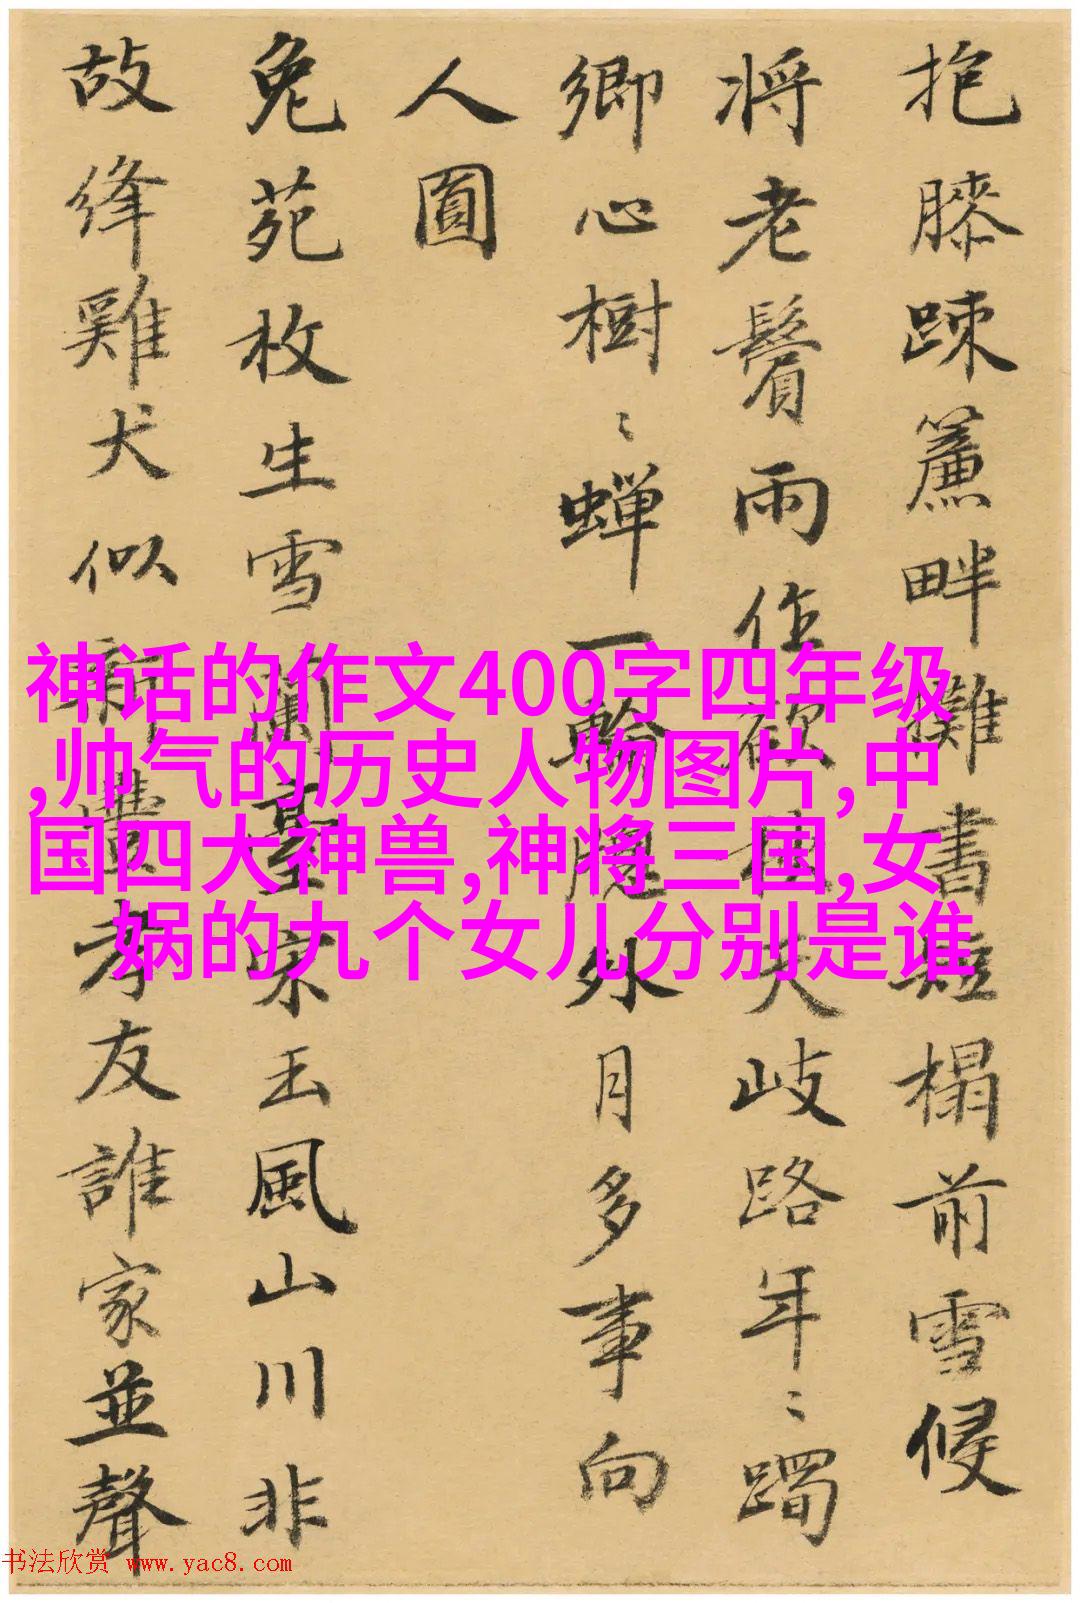 抱膝踈簾畔攤書短榻前雪候
将老鬢雨作欲
夫岐路年〻躅
卿心樹〻蟬一輪
外月多事向
人圓
兔苑枚生雪蘭臺宋玉風山川非
故絳雞犬似新豊孝友誰家並聲
神话的作文400字四年级
,帅气的历史人物图片,中
国四大神兽,神将三国,女
娲的九个女儿分别是谁
书法欣赏 www.yac8.com